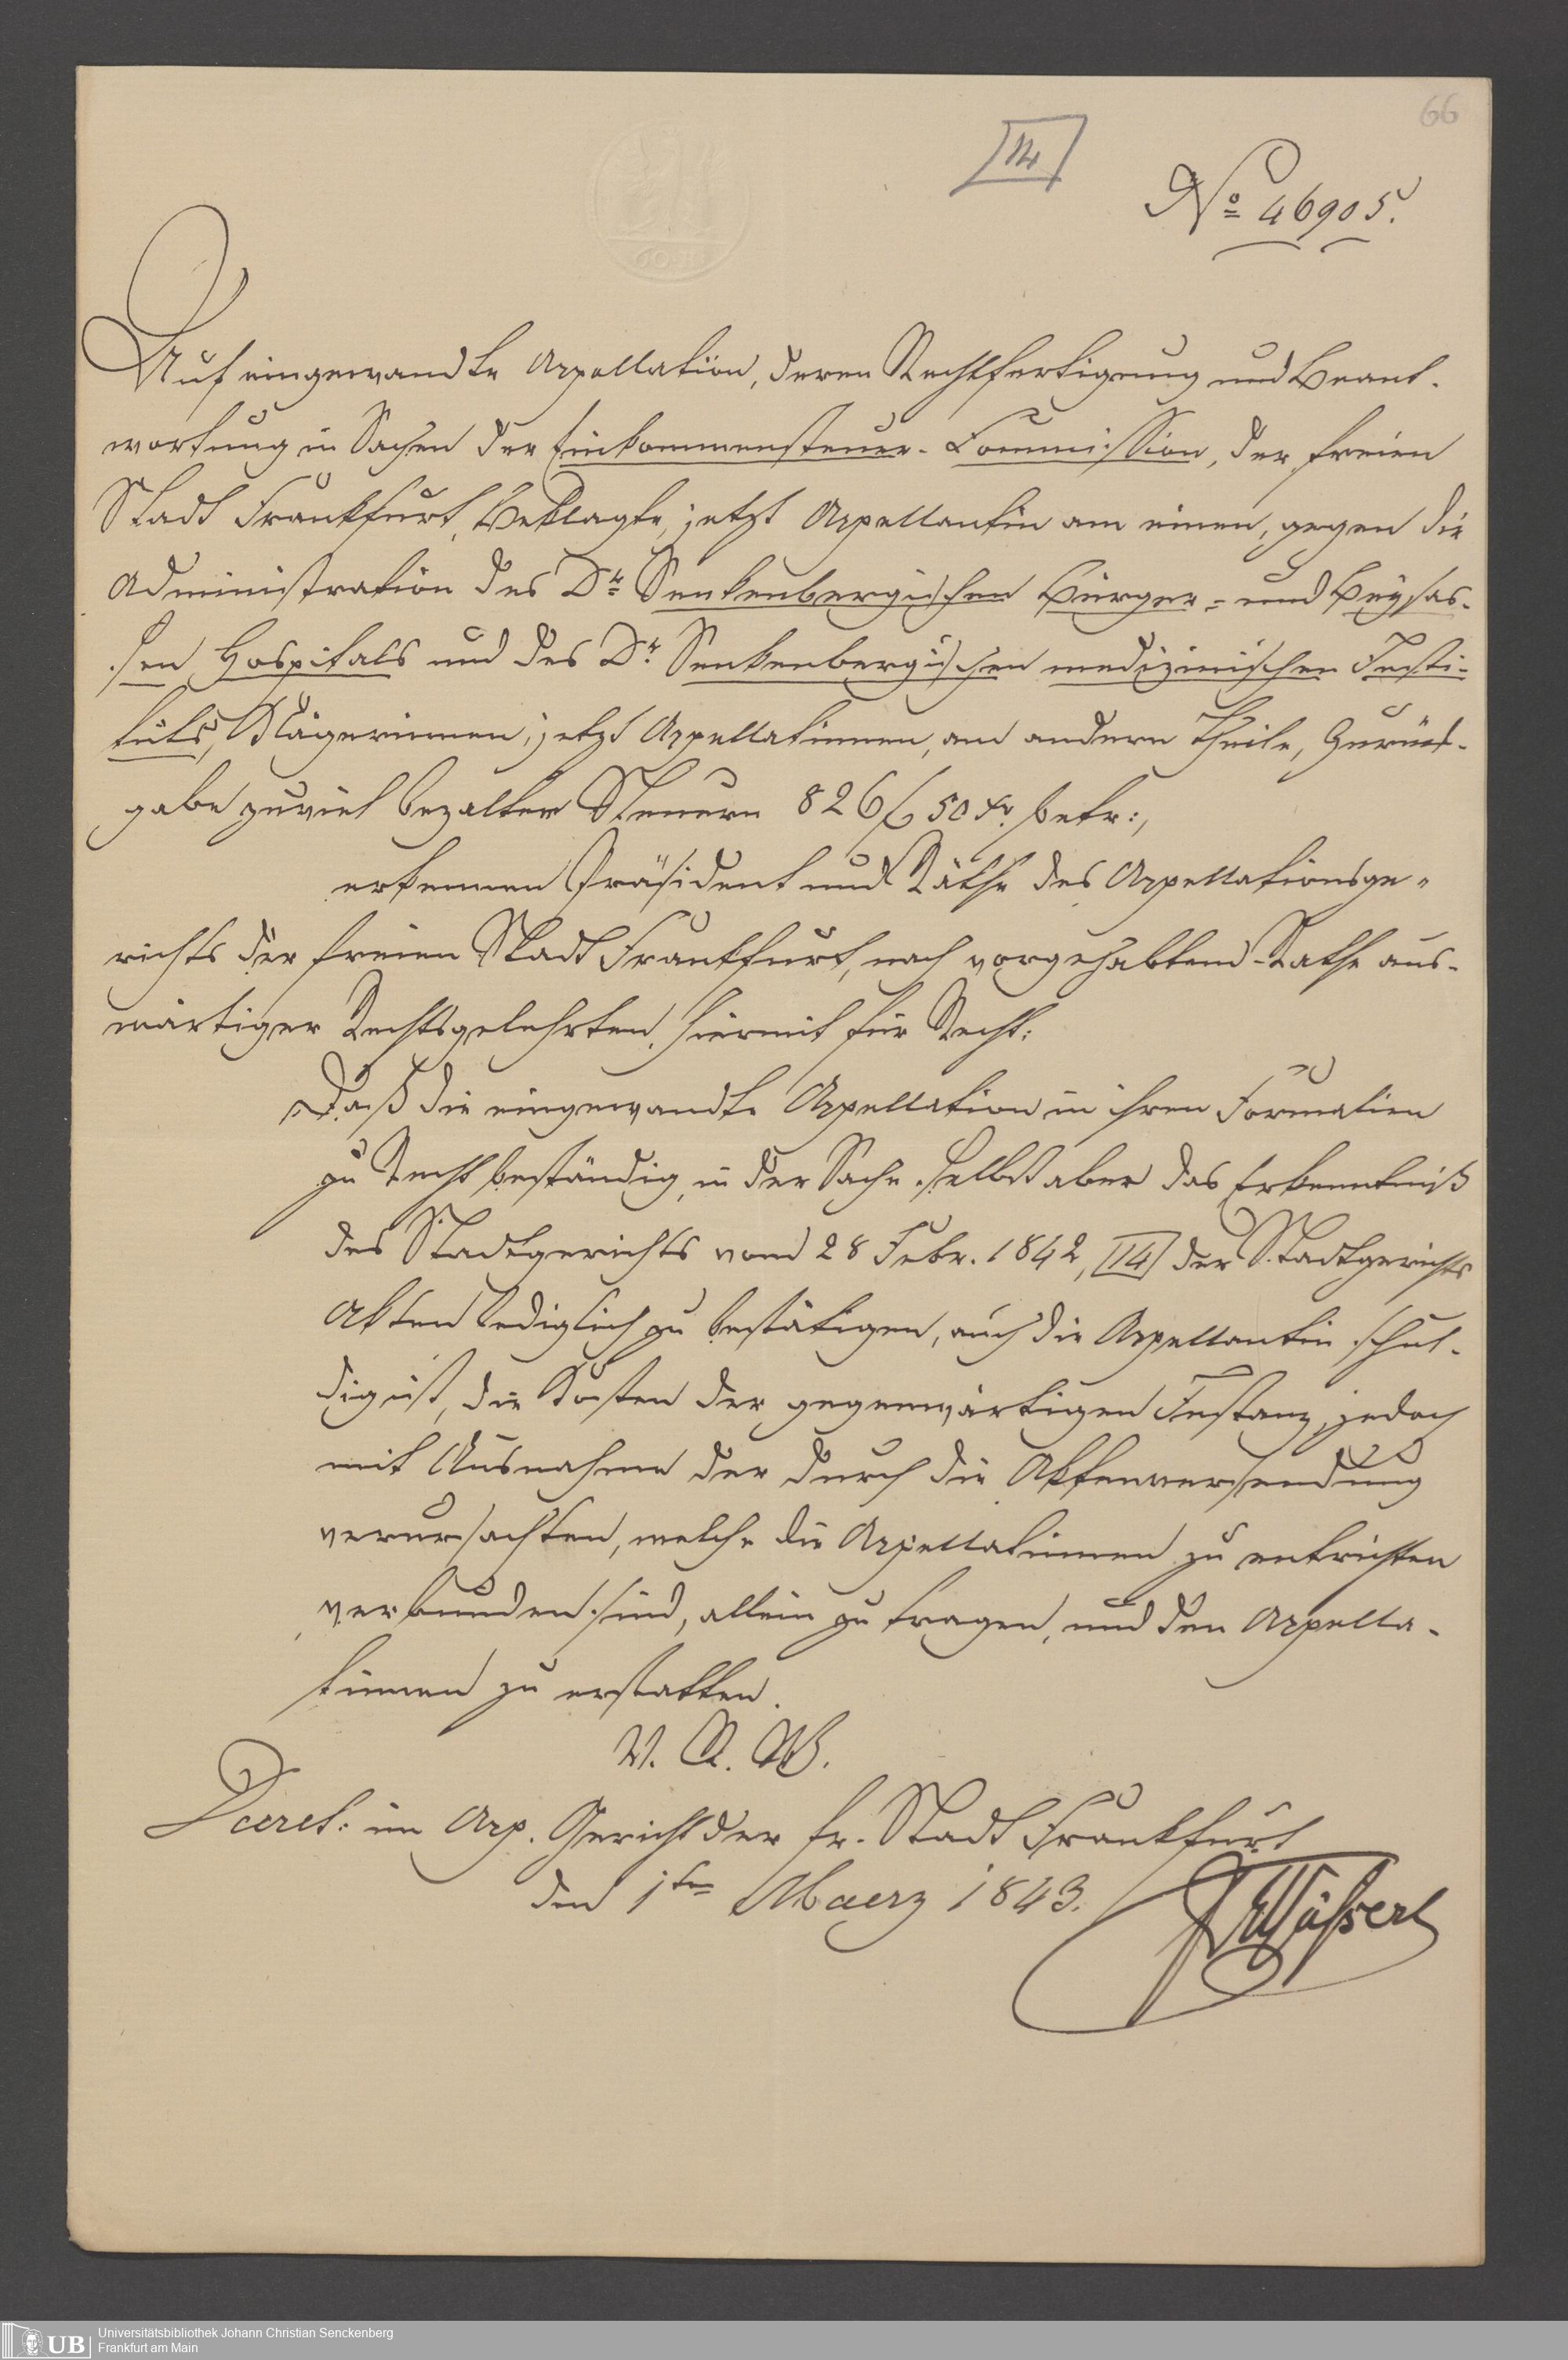 66
14
No 46905.
Auf eingewandte Appellation, deren Rechtfertigung und Beant-
wortung in Sachen der Einkommensteuer-Commission, der freien
Stadt Frankfurt, Beklagte, jetzt Appellantin am einen, gegen die
Administration des Dr. Senkenbergischen Bürger- und Beysas-
sen Hospitals und des Dr. Senkenbergischen medizinischen Insti-
tuts, Klägerinnen, jetzt Appellatinnen, am andern Theile, Zurück-
gabe zuviel bezalter Steuern 826 f 50 xr. betr:,
erkennen Präsident und Räthe des Appellationsge-
richts der freien Stadt Frankfurt, nach vorgehabtem Rathe aus-
wärtiger Rechtsgelehrten, hiermit für Recht:
Daß die eingewandte Appellation in ihren Formalien
zu Recht beständig, in der Sache selbst aber das Erkenntniß
des Stadtgerichts vom 28 Febr. 1842, [14] der Stadtgerichts
Akten lediglich zu bestätigen, auch die Appellantin schul-
dig ist, die Kosten der gegenwärtigen Instanz, jedoch
mit Ausnahme der durch die Aktenversendung
verursachten, welche die Appellatinnen zu entrichten
verbunden sind, allein zu tragen, und den Appella-
tinnen zu erstatten.
V. R. W.
Decret: im App. Gericht der fr. Stadt Frankfurt
den 1ten Maerz 1843.
UB
Universitätsbibliothek Johann Christian Senckenberg
Frankfurt am Main